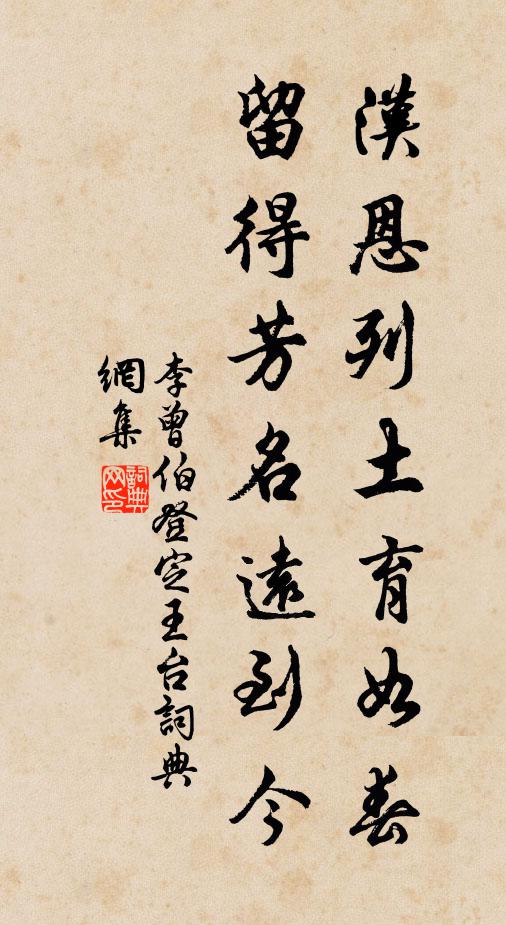 漢恩列土育如春
留得芳名遠到今
李曾伯登定王台詞典
網集
詞典网印